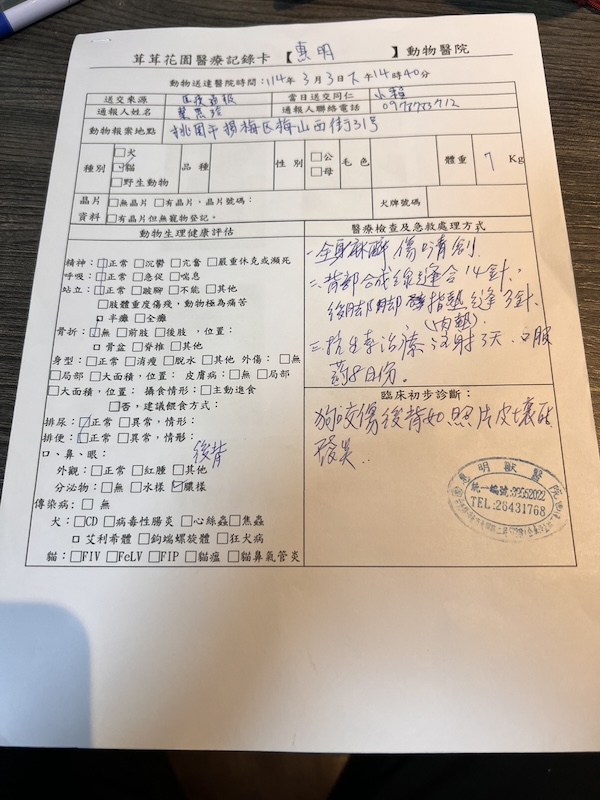 茸茸花園醫療記錄卡 【惠明】動物醫院
動物送達醫院時間:114年3月3日下午14時40分
送交來源 當日送交同仁 小程
通報人姓名 通報人聯絡電話
動物報案地點 桃園市楊梅區梅山西街31号
種別 □犬 ☑貓 □野生動物 品種 性別 □公 □母 毛色 體重 7 Kg
晶片資料 □無晶片 □有晶片,晶片號碼: □有晶片但無寵物登記。 犬牌號碼
動物生理健康評估
精神:☑正常 □沉鬱 □亢奮 □嚴重休克或瀕死
呼吸:☑正常 □急促 □喘息
站立:☑正常 □跛腳 □不能 □其他
□肢體重度傷殘,動物極為痛苦
□半癱 □全癱
骨折:☑無 □前肢 □後肢,位置:
□骨盆 □脊椎 □其他
身型:□正常 □消瘦 □脫水 □其他 外傷:□無
□局部 □大面積,位置: 皮膚病:□無 □局部
□大面積,位置: 攝食情形:□主動進食
□否,建議餵食方式:
排尿:☑正常 □異常,情形:
排便:☑正常 □異常,情形:
口、鼻、眼: 後背
外觀:□正常 □紅腫 □其他
分泌物:□無 □水樣 ☑膿樣
傳染病:□無
犬:□CD □病毒性腸炎 □心絲蟲 □焦蟲
□艾利希體 □鉤端螺旋體 □狂犬病
貓:□FIV □FeLV □FIP □貓瘟 □貓鼻氣管炎
醫療檢查及急救處理方式
一.全身麻醉 傷口清創.
二.背部合成線縫合14針,
後腳腳指墊縫3針.
(肉墊).
三.抗生素治療 注射3天. 口服
药8日份.
臨床初步診斷:
狗咬傷後背如照片皮壞死
發臭..
惠明獸醫院
統一編號:
TEL:26431768